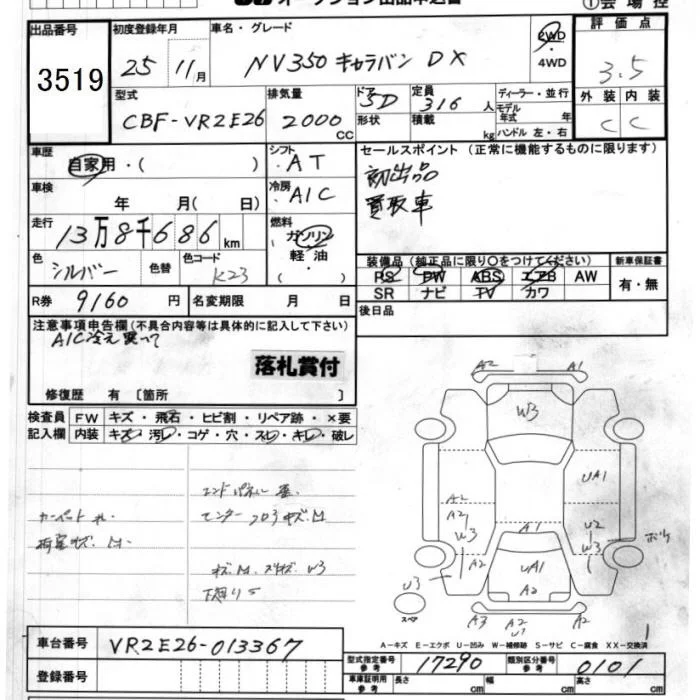 オークション出品申込書
①会場控
出品番号
3519
初度登録年月
25 11月
車名・グレード
NV350 キャラバン DX
2WD
・
4WD
評価点
3.5
型式
CBF-VR2E26
排気量
2000
CC
ドア
5D
形状
定員
3/6人
積載
kg
ディーラー・並行
モデル
年式 年
ハンドル 左・右
外装 内装
C C
車歴
自家用・( )
シフト
AT
セールスポイント (正常に機能するものに限ります)
初出品
買取車
車検
年 月( 日)
冷房
A/C
走行
13万8千686km
燃料
ガソリン
軽油
( ・ )
色
シルバー
色替
色コード
K23
装備品 (純正品に限り○をつけてください)
PS PW ABS エアB AW
SR ナビ TV カワ
新車保証書
有・無
R券 9160円
名変期限 月 日
後日品
注意事項申告欄(不具合内容等は具体的に記入して下さい)
A/C冷え悪いって
落札賞付
修復歴 有〔箇所 〕
検査員
記入欄
FW キズ・飛石・ヒビ割・リペア跡・×要
内装 キズ・汚レ・コゲ・穴・スレ・キレ・破レ
エンドパネル
カーペット
センター フロアキズ
荷室キズ
下廻り
A2 A1
W3
UA1
A2
A2
W3
A2
A1
UA1
A2
U2
W3
A2
ボツ
U3
スペア
A3 A2 A2
U1
A-キズ E-エクボ U-凹み W-補修跡 S-サビ C-腐食 XX-交換済
車台番号
VR2E26-013367
登録番号
型式指定番号
参考
17290
類別区分番号
参考
0101
車庫証明用
参考
長さ cm 幅 cm 高さ cm